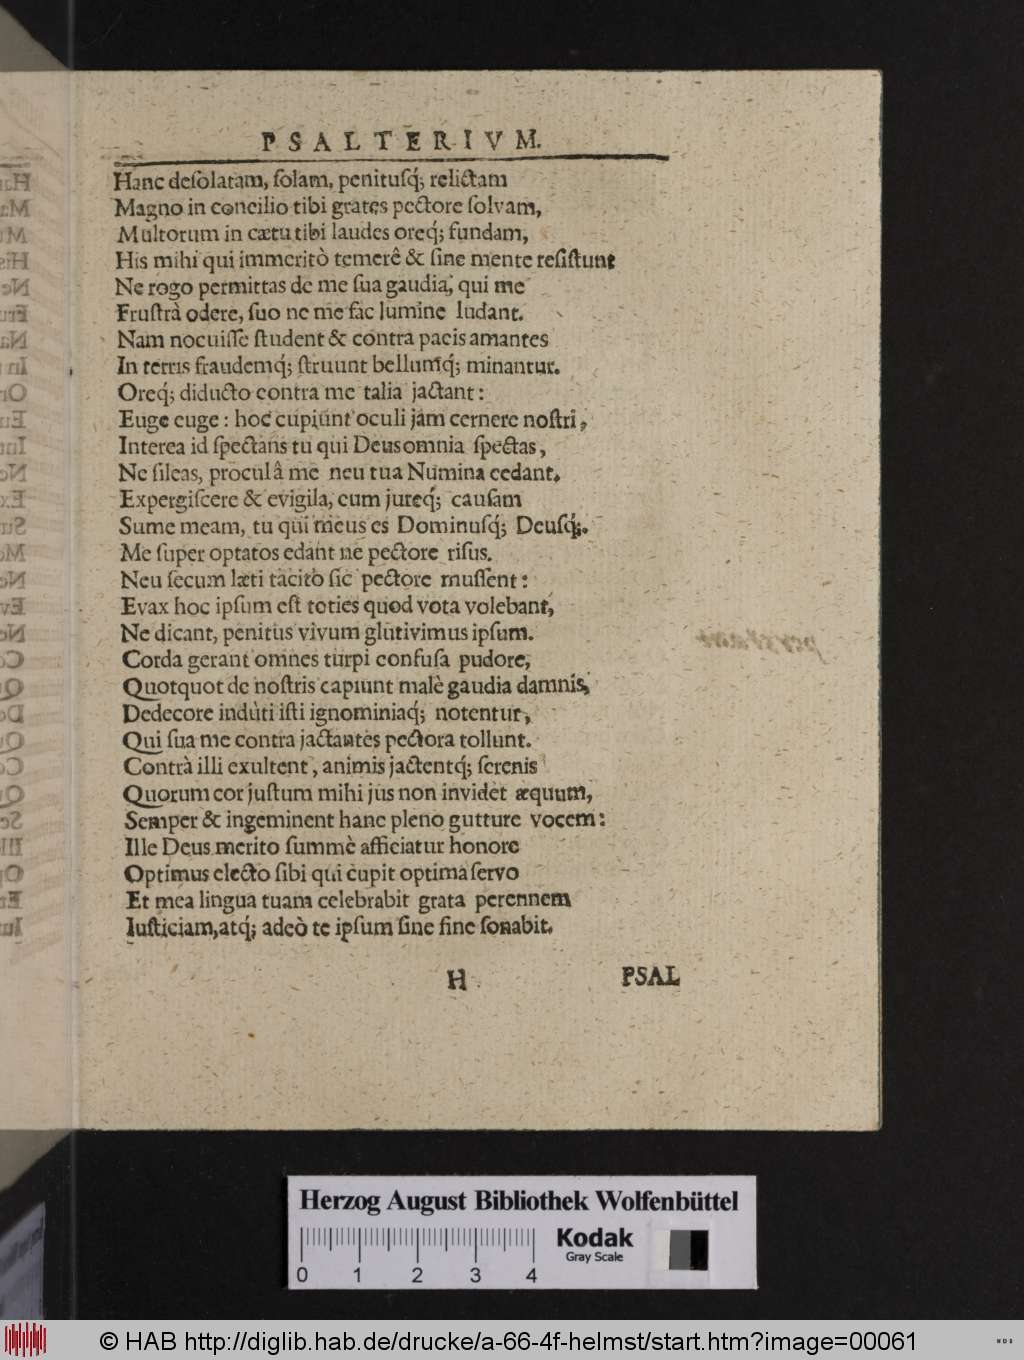 PSALTERIVM.
Hanc deſolatam, ſolam, penitusq́; relictam
Magno in concilio tibi grates pectore ſolvam,
Multorum in cætu tibi laudes oreq́; fundam,
His mihi qui immeritò temerê & ſine mente reſiſtunt
Ne rogo permittas de me ſua gaudia, qui me
Fruſtrà odere, ſuo ne me fac lumine ludant.
Nam nocuiſſe ſtudent & contra pacis amantes
In terris fraudemq́; ſtruunt bellumq́; minantur.
Oreq́; diducto contra me talia jactant:
Euge euge: hoc cupiunt oculi jam cernere noſtri,
Interea id ſpectans tu qui Deus omnia ſpectas,
Ne ſileas, procul â me neu tua Numina cedant.
Expergiſcere & evigila, cum jureq́; cauſam
Sume meam, tu qui meus es Dominuſq́; Deuſq́;.
Me ſuper optatos edant ne pectore riſus.
Neu ſecum læti tacitò ſic pectore muſſent:
Evax hoc ipſum eſt toties quod vota volebant,
Ne dicant, penitus vivum glutivimus ipſum.
Corda gerant omnes turpi confuſa pudore,
Quotquot de noſtris capiunt malè gaudia damnis,
Dedecore indùti iſti ignominiaq́; notentur,
Qui ſua me contra jactantes pectora tollunt.
Contrà illi exultent, animis jactentq́; ſerenis
Quorum cor juſtum mihi jus non invidet æquum,
Semper & ingeminent hanc pleno gutture vocem:
Ille Deus merito ſummè afficiatur honore
Optimus electo ſibi qui cupit optima ſervo
Et mea lingua tuam celebrabit grata perennem
Iuſticiam, atq́; adeò te ipſum ſine fine ſonabit.
H PSAL
Herzog August Bibliothek Wolfenbüttel
Kodak
Gray Scale
0 1 2 3 4
© HAB http://diglib.hab.de/drucke/a-66-4f-helmst/start.htm?image=00061